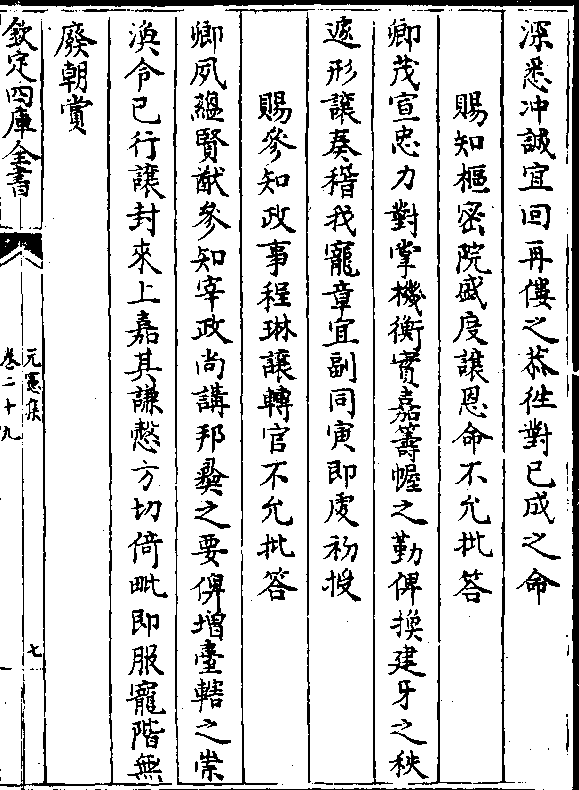 深悉冲誠宜回再僂之恭往對已成之命
賜知樞密院盛度讓恩命不允批答
卿茂宣忠力對掌機衡實嘉籌幄之勤俾換建牙之秩
遽形讓奏稽我寵章宜副同寅即虔初授
賜參知政事程琳讓轉官不允批答
卿夙蘊賢猷參知宰政尚講邦彞之要俾增臺轄之崇
渙令已行讓封來上嘉其謙慤方切倚毗即服寵階無
廢朝賞
欽定四庫全書
元憲集
卷二十九
七